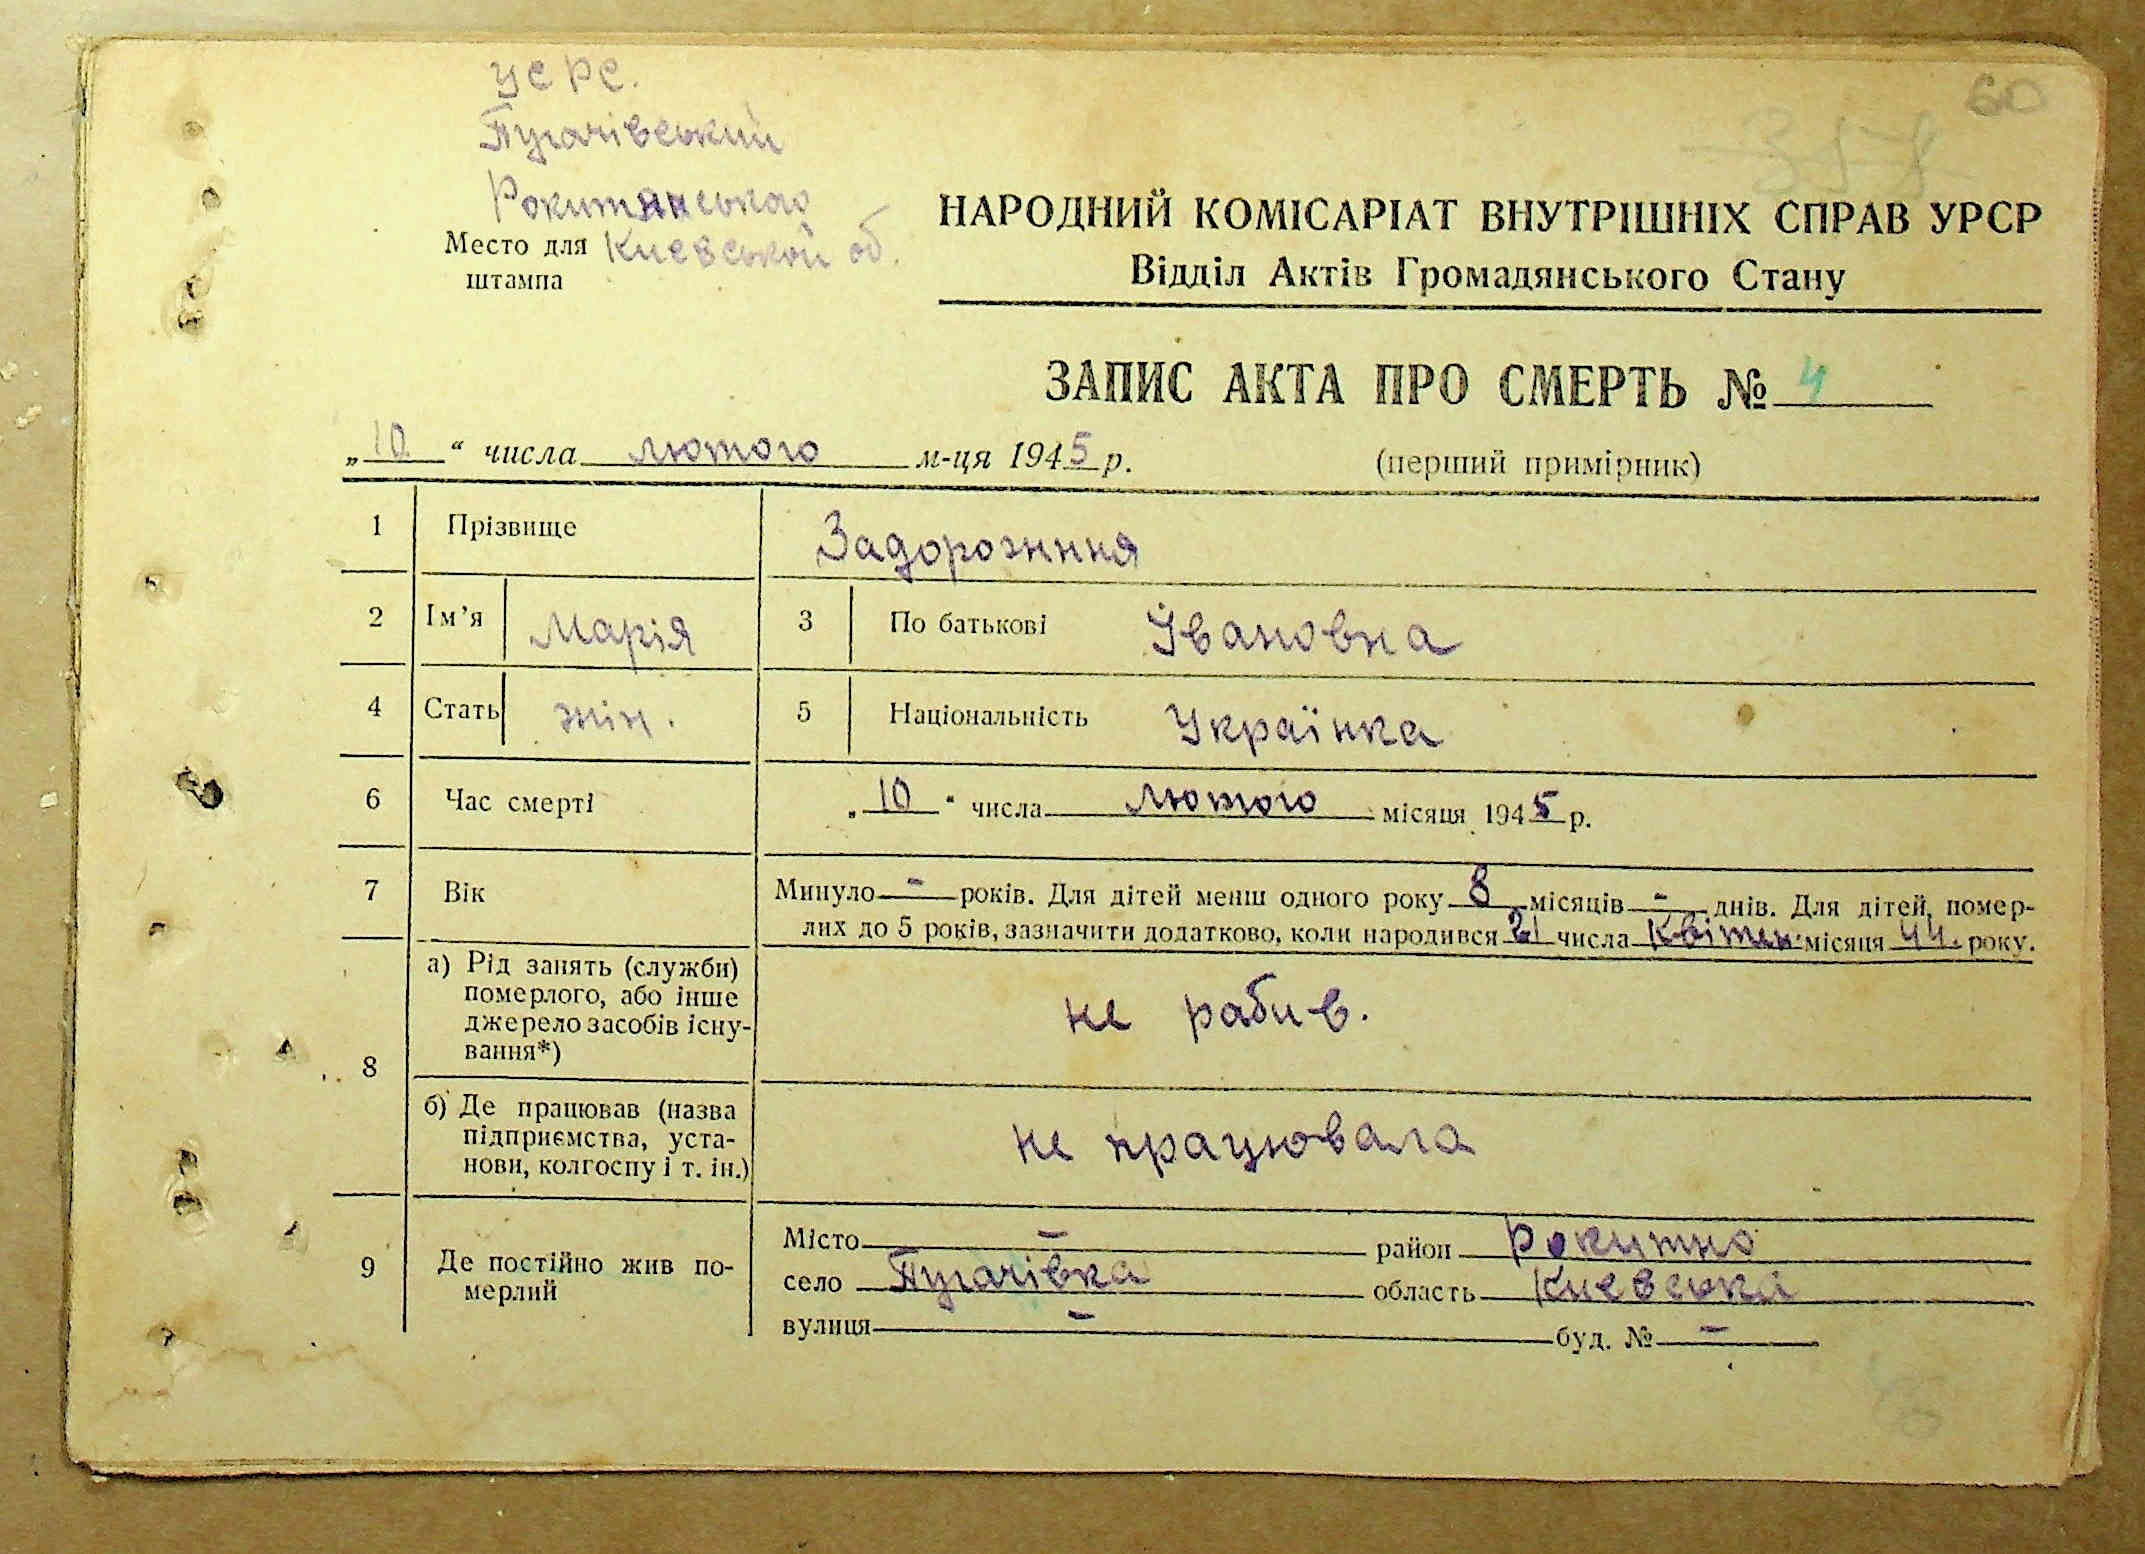 УСРС.
Пугачівський
Рокитянського
Место для Киевськой об.
штампа
60
НАРОДНИЙ КОМІСАРІАТ ВНУТРІШНІХ СПРАВ УРСР
Відділ Актів Громадянського Стану
ЗАПИС АКТА ПРО СМЕРТЬ № 4
„10“ числа лютого м-ця 1945 р.
(перший примірник)
1 Прізвище Задорожння
2 Ім'я Марія 3 По батькові Івановна
4 Стать жін. 5 Національність Українка
6 Час смерті „10“ числа лютого місяця 1945 р.
7 Вік Минуло - років. Для дітей менш одного року 8 місяців - днів. Для дітей, помер-
лих до 5 років, зазначити додатково, коли народився 21 числа Квітен. місяця 44. року.
8 а) Рід занять (служби)
померлого, або інше
джерело засобів існу-
вання*)
не рабив.
б) Де працював (назва
підприємства, уста-
нови, колгоспу і т. ін.)
не працювала
9 Де постійно жив по-
мерлий
Місто - район Рокитно
село Пугачівка область Киевська
вулиця - буд. № -